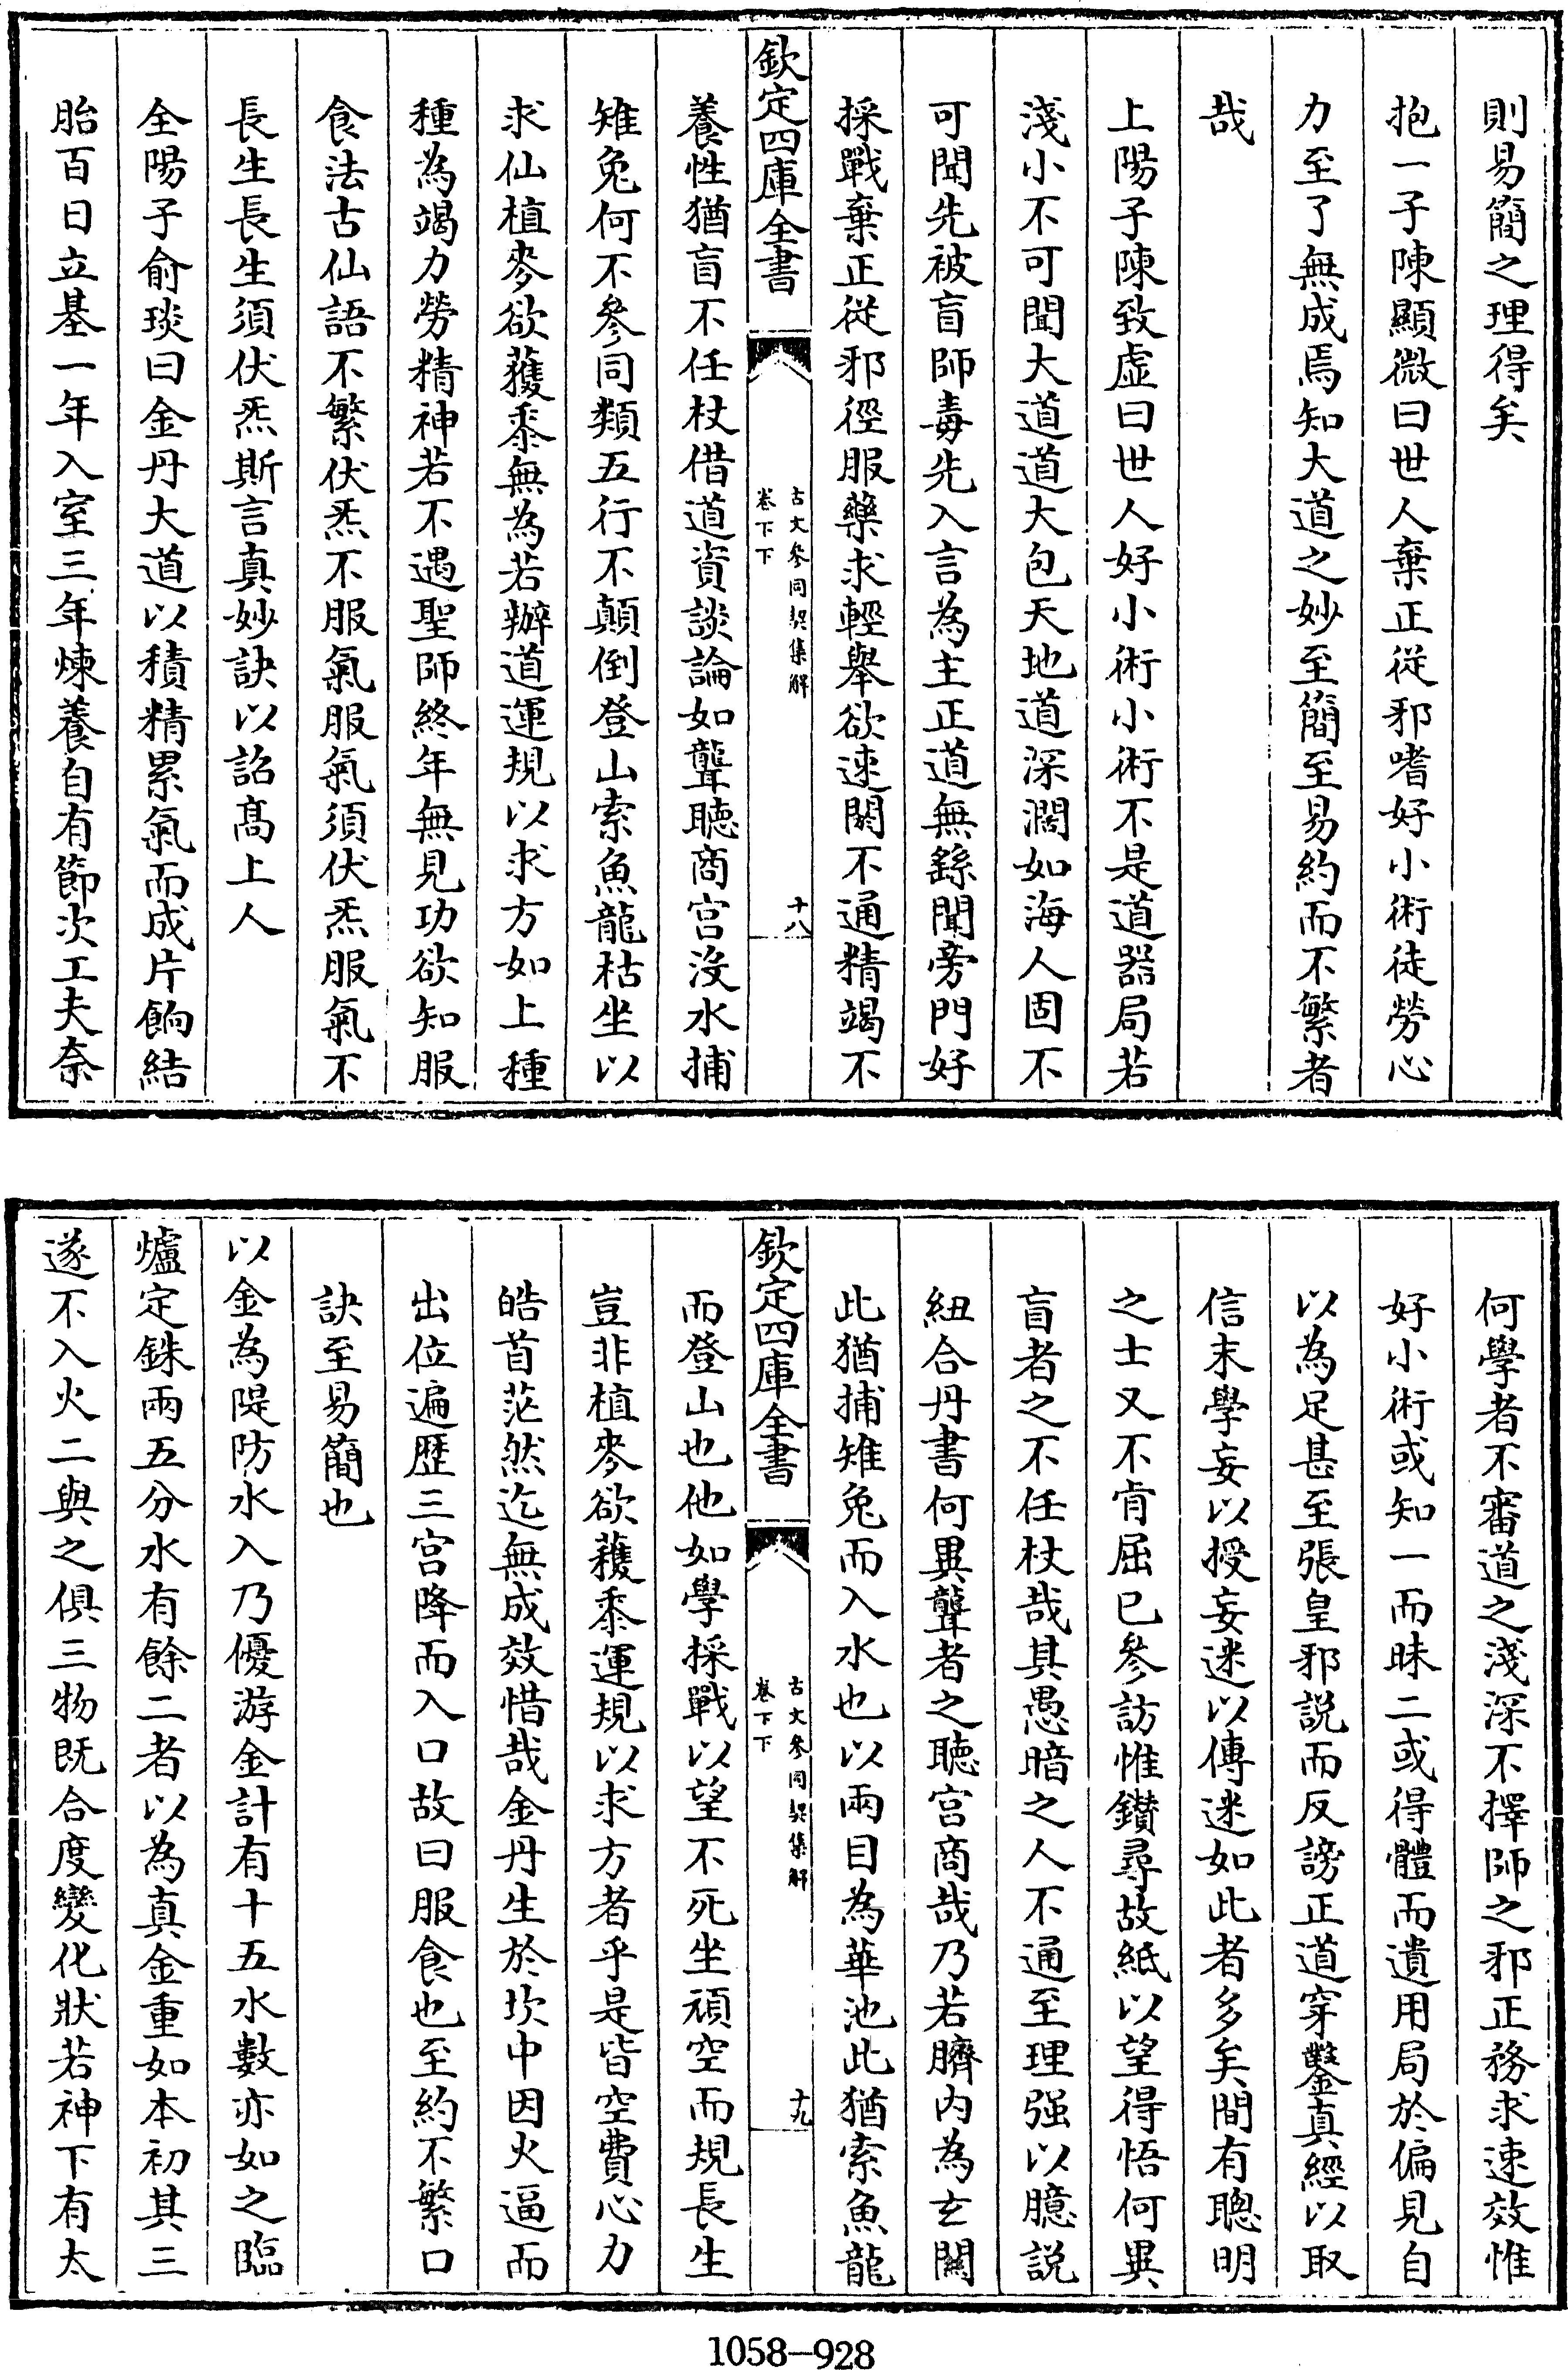 則易簡之理得矣
抱一子陳顯微曰世人棄正從邪嗜好小術徒勞心
力至了無成焉知大道之妙至簡至易約而不繁者
哉
上陽子陳致虛曰世人好小術小術不是道器局若
淺小不可聞大道道大包天地道深濶如海人固不
可聞先被盲師毒先入言為主正道無繇聞旁門好
採戰棄正從邪徑服藥求輕舉欲速閼不通精竭不
欽定四庫全書
古文參同契集解
卷下下
十八
養性猶盲不任杖借道資談論如聾聽商宫没水捕
雉兔何不參同類五行不顛倒登山索魚龍枯坐以
求仙植麥欲蘹黍無為若辦道運規以求方如上種
種為竭力勞精神若不遇聖師終年無見功欲知服
食法古仙語不繁伏炁不服氣服氣須伏炁服氣不
長生長生須伏炁斯言真妙訣以詔髙上人
全陽子俞琰曰金丹大道以積精累氣而成片餉結
胎百日立基一年入室三年煉養自有節次工夫奈
何學者不審道之淺深不擇師之邪正務求速效惟
好小術或知一而昧二或得體而遺用局於偏見自
以為足甚至張皇邪説而反謗正道穿鑿真經以取
信末學妄以授妄迷以傳迷如此者多矣間有聰明
之士又不肯屈已參訪惟鑚尋故紙以望得悟何異
盲者之不任杖哉其愚暗之人不通至理强以臆説
紐合丹書何異聾者之聽宫商哉乃若臍内為𤣥關
此猶捕雉兔而入水也以兩目為華池此猶索魚龍
欽定四庫全書
古文參同契集解
卷下下
十九
而登山也他如學採戰以望不死坐頑空而規長生
豈非植麥欲蘹黍運規以求方者乎是皆空費心力
皓首茫然迄無成效惜哉金丹生於坎中因火逼而
出位遍歴三宫降而入口故曰服食也至約不繁口
訣至易簡也
以金為隄防水入乃優游金計有十五水數亦如之臨
爐定銖兩五分水有餘二者以為真金重如本初其三
遂不入火二與之俱三物既合度變化狀若神下有太
1058-928